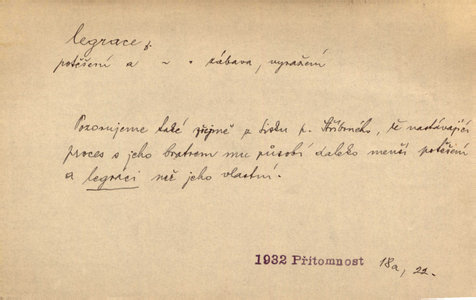 legrace f.
potěšení a ~ • zábava, vyražení
Pozorujeme také zřejmě u tisku p. Stříbrného, že nastávající
proces s jeho bratrem mu působí daleko menší potěšení
a legraci než jeho vlastní.
1932 Přítomnost 18a, 22.